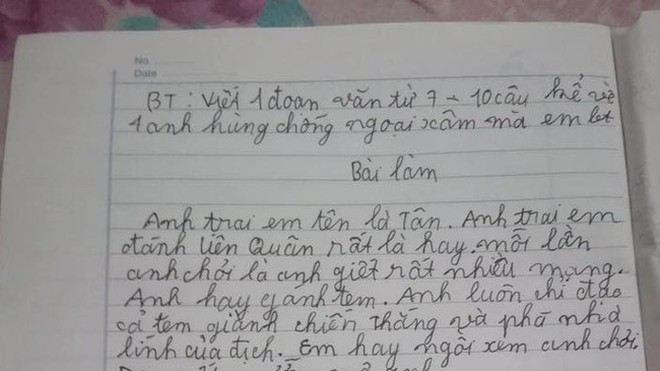 No.
Date
BT: Viết 1 đoạn văn từ 7 - 10 câu kể về
1 anh hùng chống ngoại xâm mà em biết
Bài làm
Anh trai em tên là Tân. Anh trai em
đánh Liên Quân rất là hay. mỗi lần
anh chơi là anh giết rất nhiều mạng.
Anh hay gánh tem. Anh luôn chỉ đạo
cả tem giành chiến thắng và phá nhà
lính của địch. Em hay ngồi xem anh chơi.